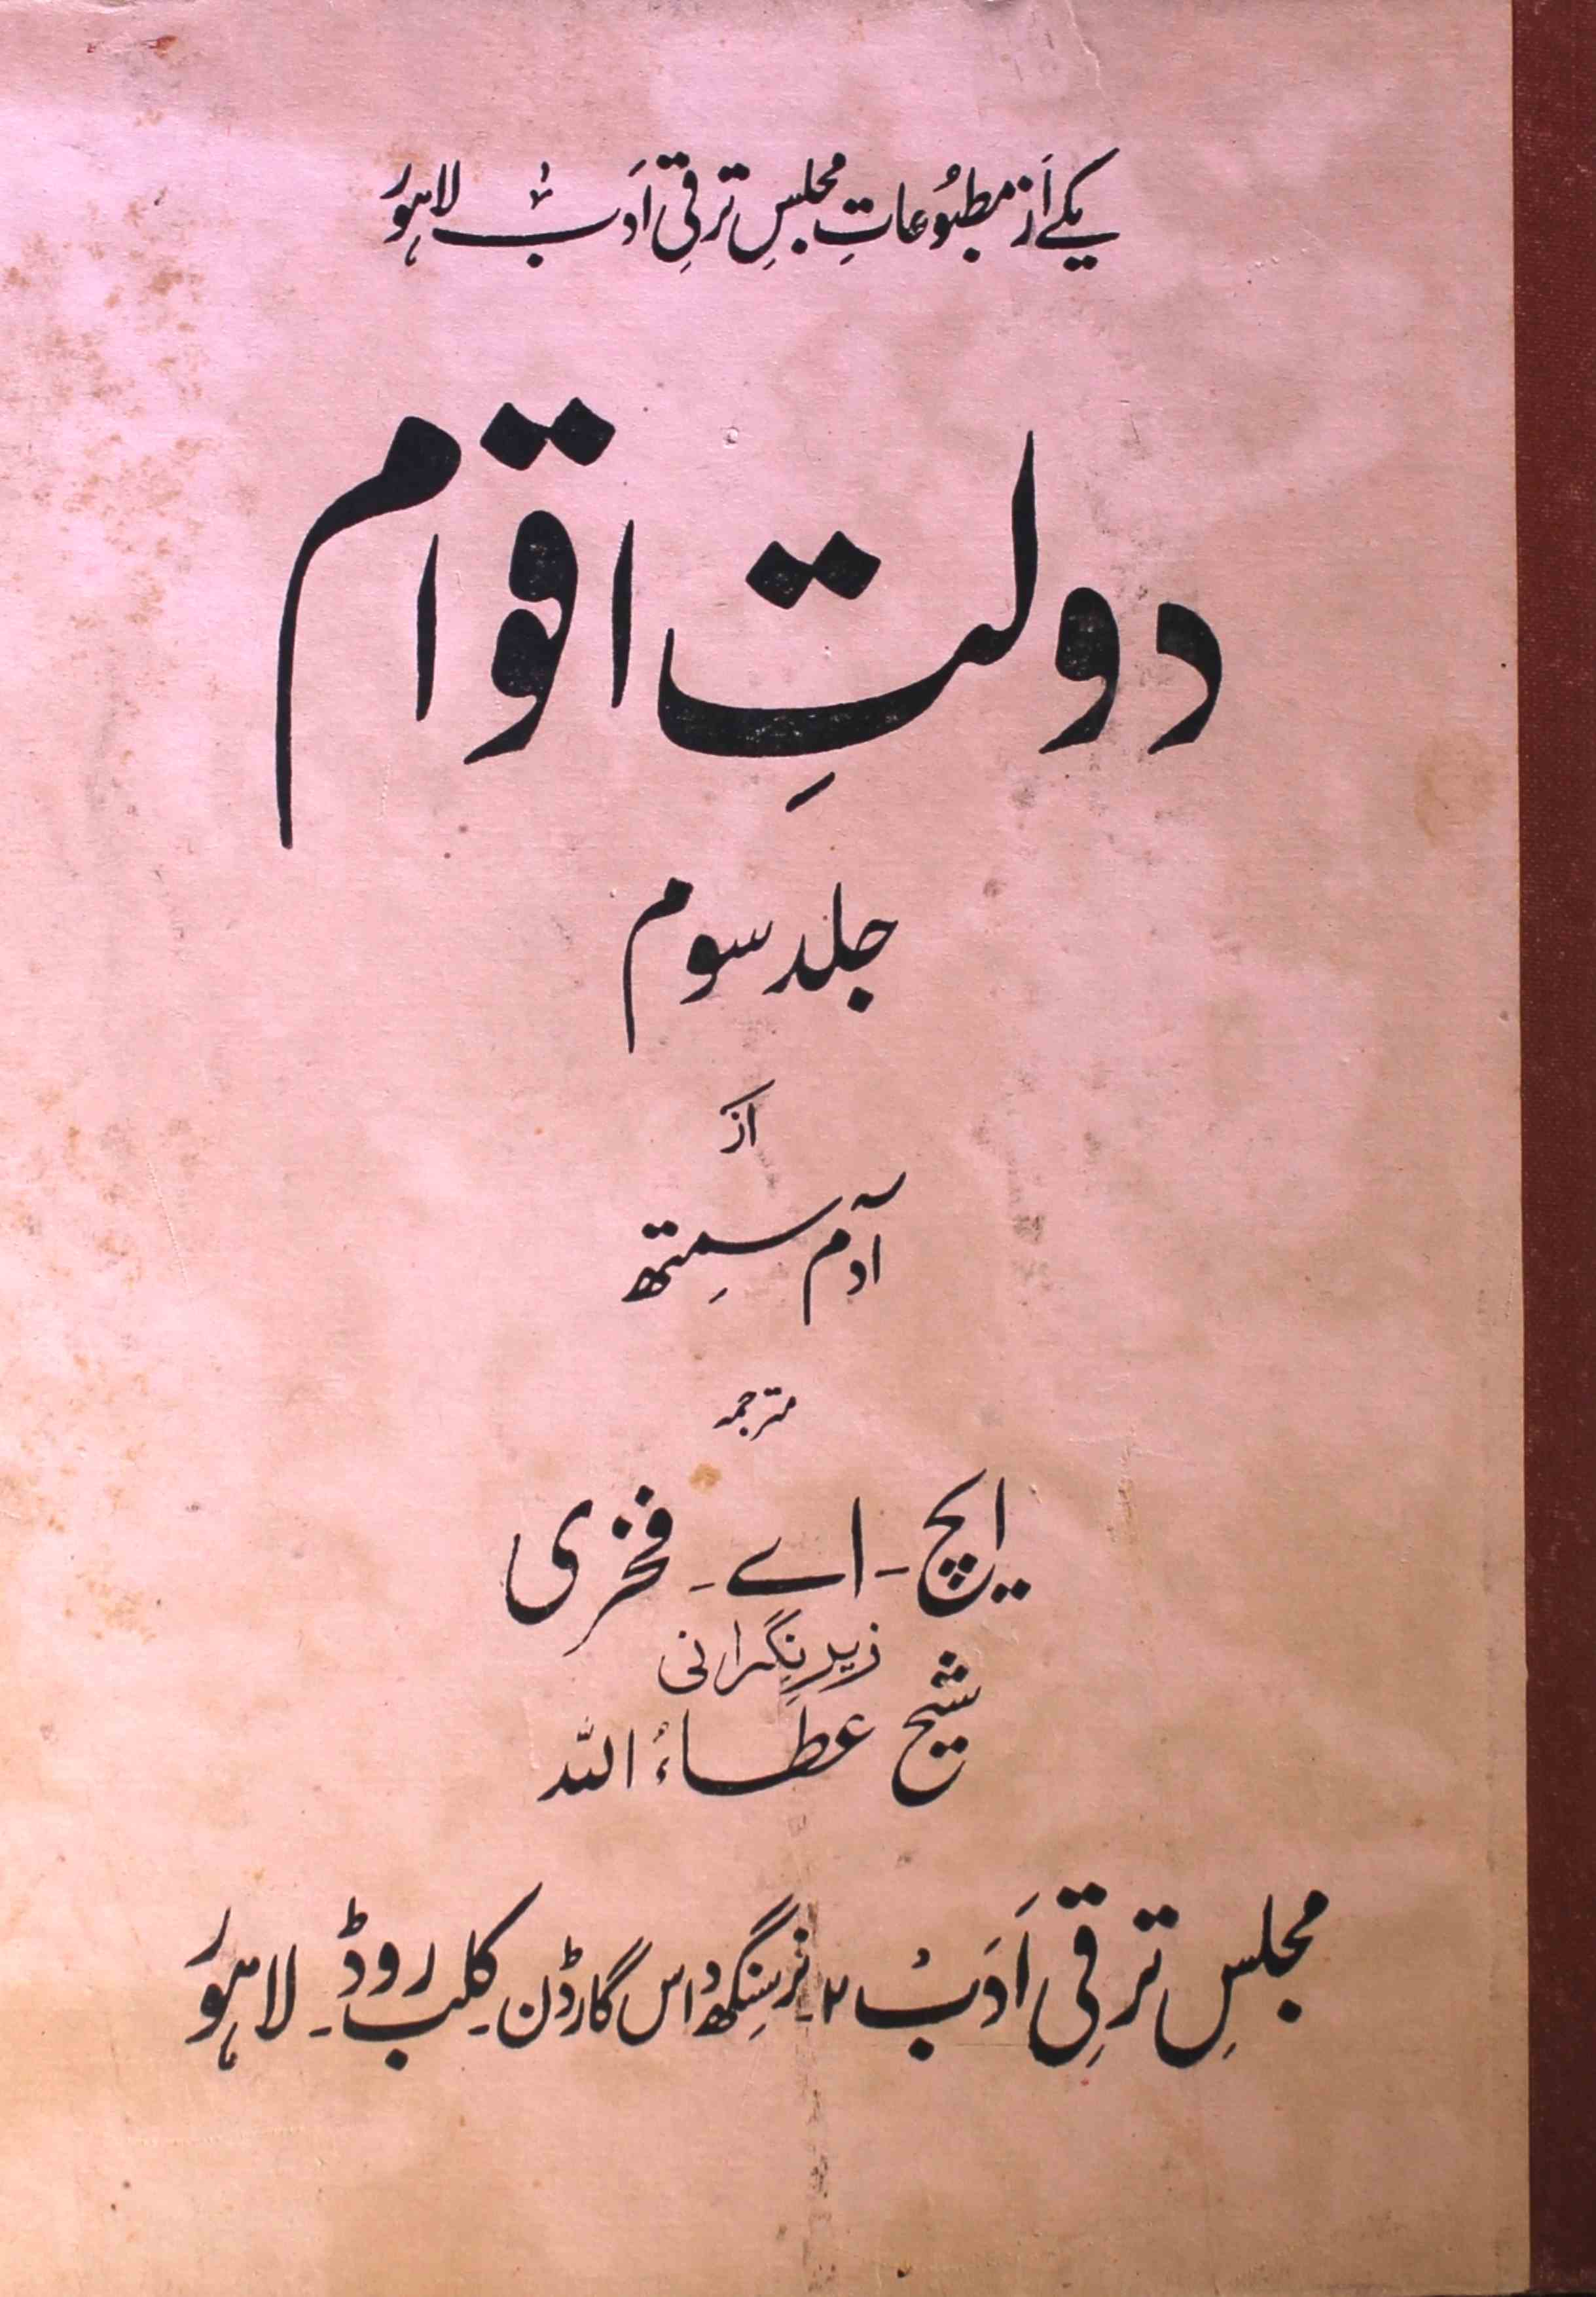 یکے از مطبُوعاتِ مجلسِ ترقیِ اَدَبْ لاہور
دولتِ اقوام
جلد سوم
از
آدم سمِتھ
مترجمہ
ایچ ۔ اے ۔ فخری
زیرِ نِگرانی
شیخ عطاءُ اللہ
مجلسِ ترقیِ اَدَبْ ۲۔ نرسنِگھ داس گارڈن ۔ کلب روڈ ۔ لاہور